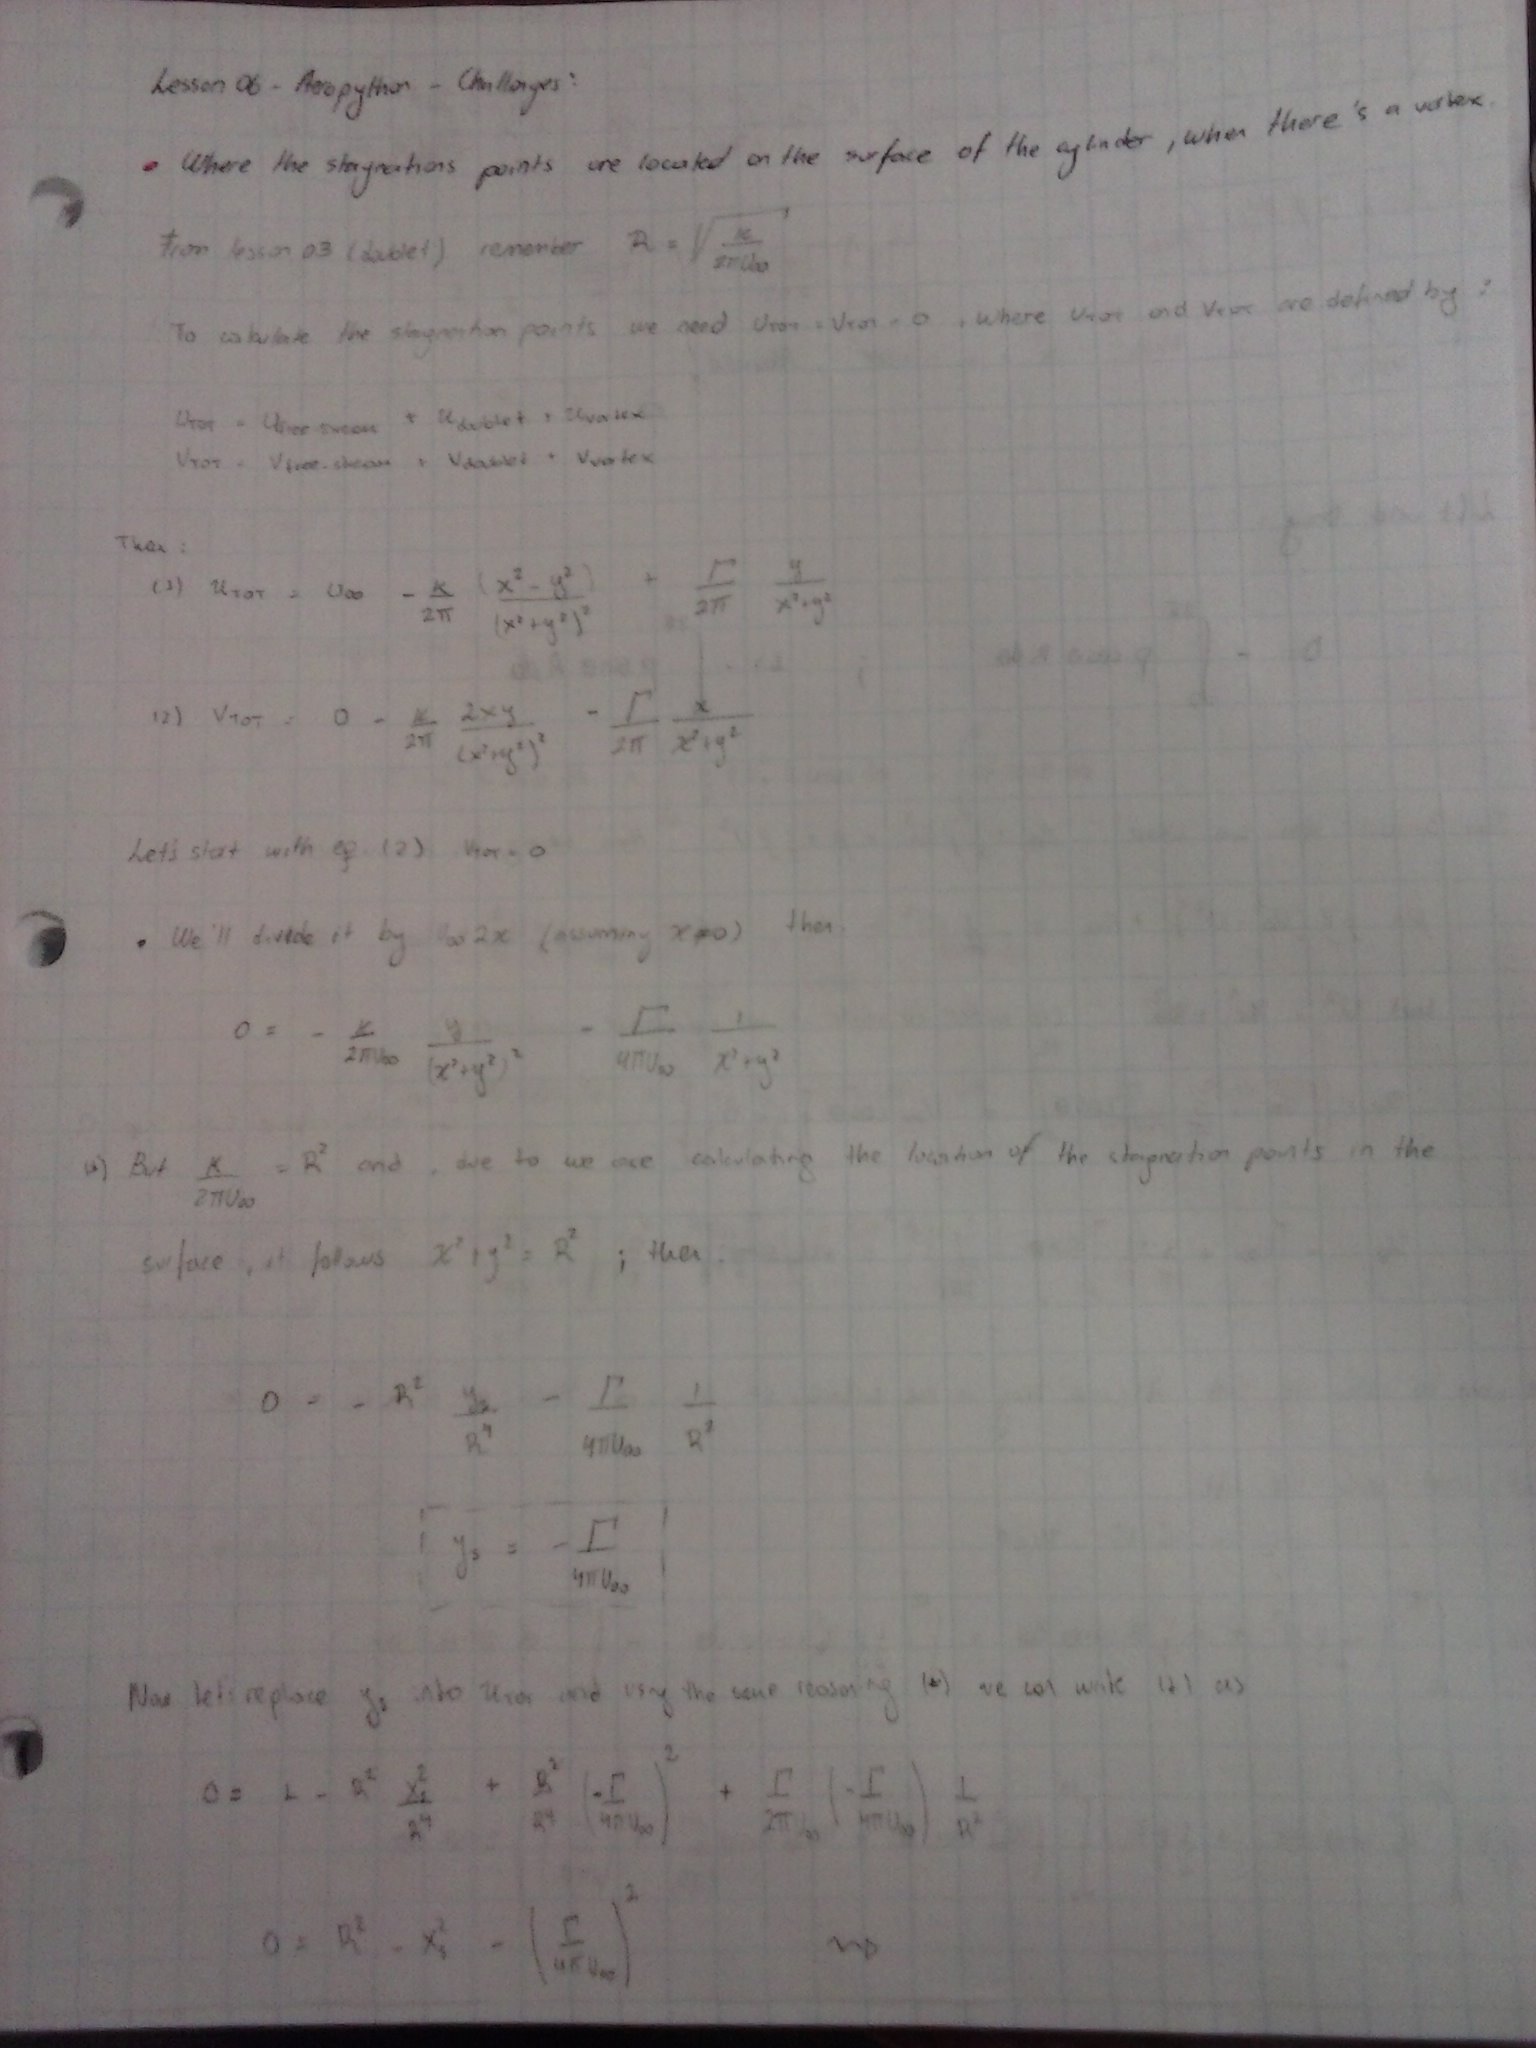 Lesson 06 - Aeropython - Challenges:
• Where the stagnations points are located on the surface of the cylinder, when there's a vortex.
From lesson 03 (doublet) remember R = √(κ / 2πU∞)
To calculate the stagnation points we need u_TOT = v_TOT = 0, where u_TOT and v_TOT are defined by:
u_TOT = u_free-stream + u_doublet + u_vortex
v_TOT = v_free-stream + v_doublet + v_vortex
Then:
(1) u_TOT = U∞ - κ/2π (x² - y²)/(x² + y²)² + Γ/2π y/(x² + y²)
(2) v_TOT = 0 - κ/2π 2xy/(x² + y²)² - Γ/2π x/(x² + y²)
Let's start with eq. (2) v_TOT = 0
• We'll divide it by U∞ 2x (assuming x≠0) then.
0 = - κ/2πU∞ y/(x² + y²)² - Γ/4πU∞ 1/(x² + y²)
(*) But κ/2πU∞ = R² and, due to we are calculating the location of the stagnation points in the
surface, it follows x² + y² = R² ; then.
0 = - R² y_s/R⁴ - Γ/4πU∞ 1/R²
y_s = - Γ/4πU∞
Now let's replace y_s into u_TOT and using the same reasoning (*) we can write (1) as
0 = 1 - R² x_s²/R⁴ + R²/R⁴ (-Γ/4πU∞)² + Γ/2πU∞ (-Γ/4πU∞) 1/R²
0 = R² - x_s² - (Γ/4πU∞)²